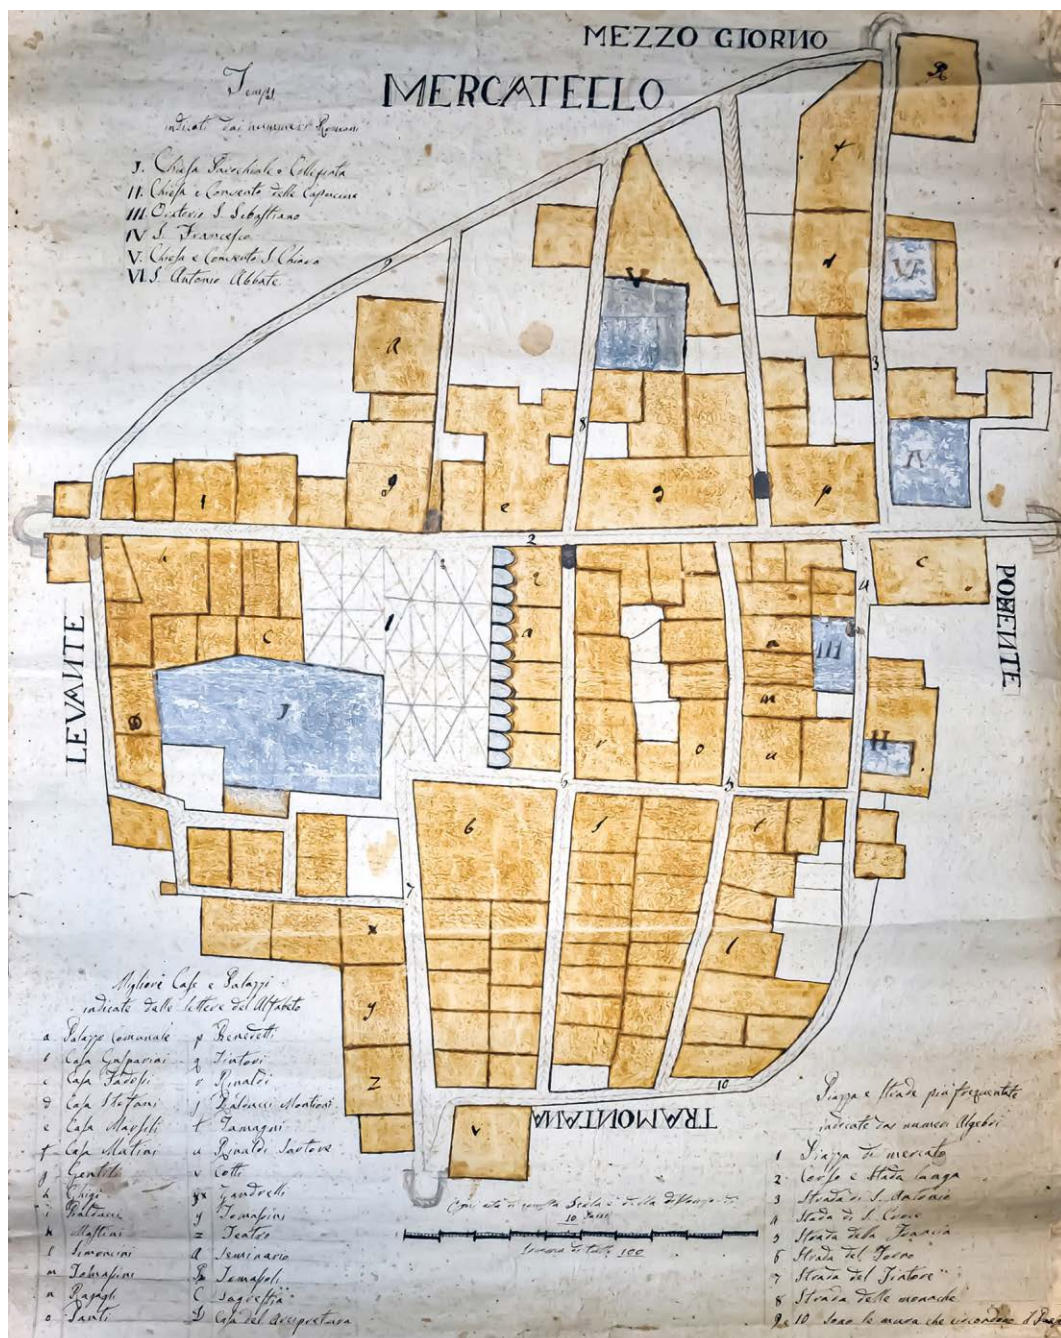 MEZZO GIORNO
MERCATELLO
Tempj
indicati dai nummeri Romani
I. Chiesa Parochiale e Collegiata
II. Chiesa e Convento delle Capucine
III. Oratorio S. Sebastiano
IV S. Francesco
V. Chiesa e Convento S. Chiara
VI. S. Antonio Abbate.
LEVANTE
PONENTE
TRAMONTANA
Migliori Case e Palazzi
indicate dalle lettere del Alfabeto
a Palazzo Comunale
Casa Gasparini
c Casa
d Casa Stefani
e Casa Marsili
f Casa Mutini
g Gentili
h Ghigi
i Balducci
k Mastini
l Simoncini
m Tomasini
n
o Santi
p Benedetti
q Tintori
r Rinaldi
Balducci Montioni
t Tamagni
u Rinaldi Sartore
v Cotti
x
y Tomasini
z Teatro
A Seminario
B Tomasoli
C Sagrestia
D Casa del Arcipretura
10 Passi
100
Piazza e Strade più frequentate
indicate dai numeri Algebri
1 Piazza di mercato
2 Corso e Stada lunga
3 Strada di S. Antonio
4 Stada di S. Croce
5 Strada della
6 Strada del Forno
7 Strada del Tintore
8 Strada delle monache
9 e 10 Sono le mura che circondano il